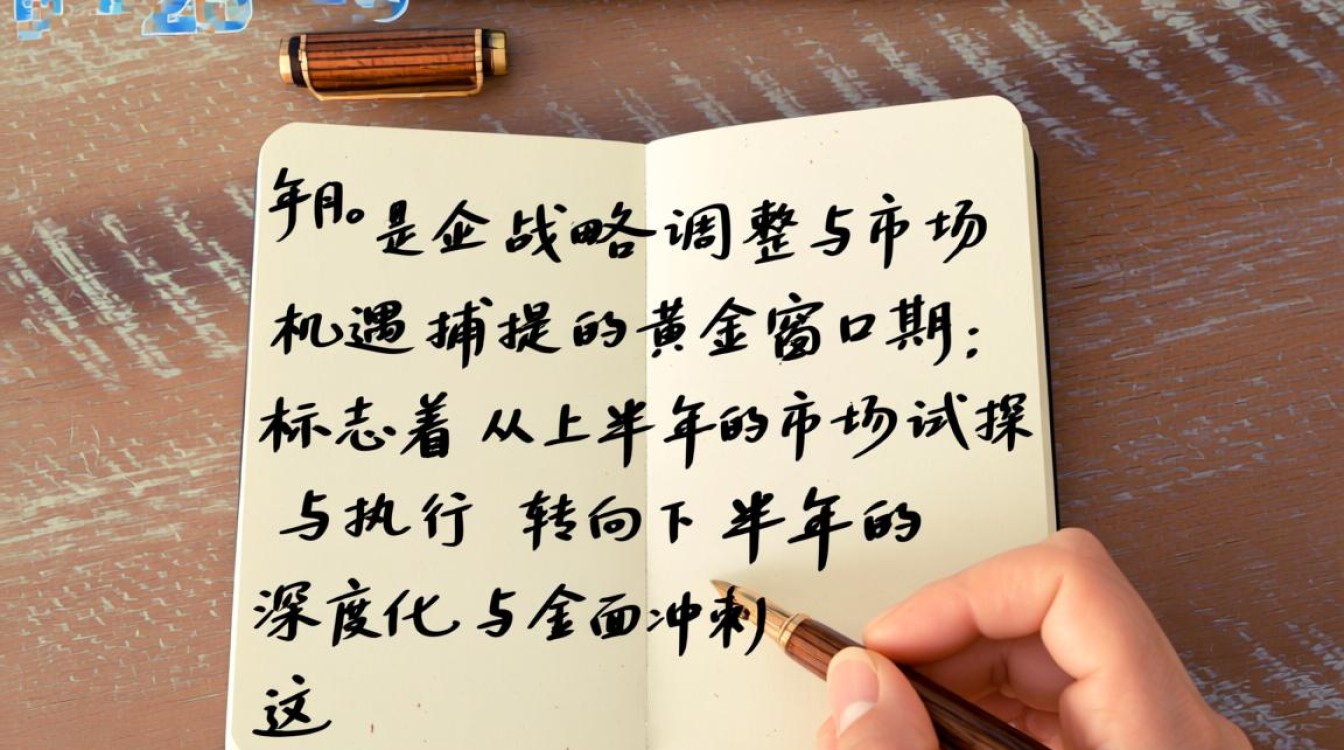 年月。是企战略调整与市场
机遇捕提的黄金窗口期；
标志着 从上半年的市场试探
与执行 转向下半年的
深度化与金面冲刺
这